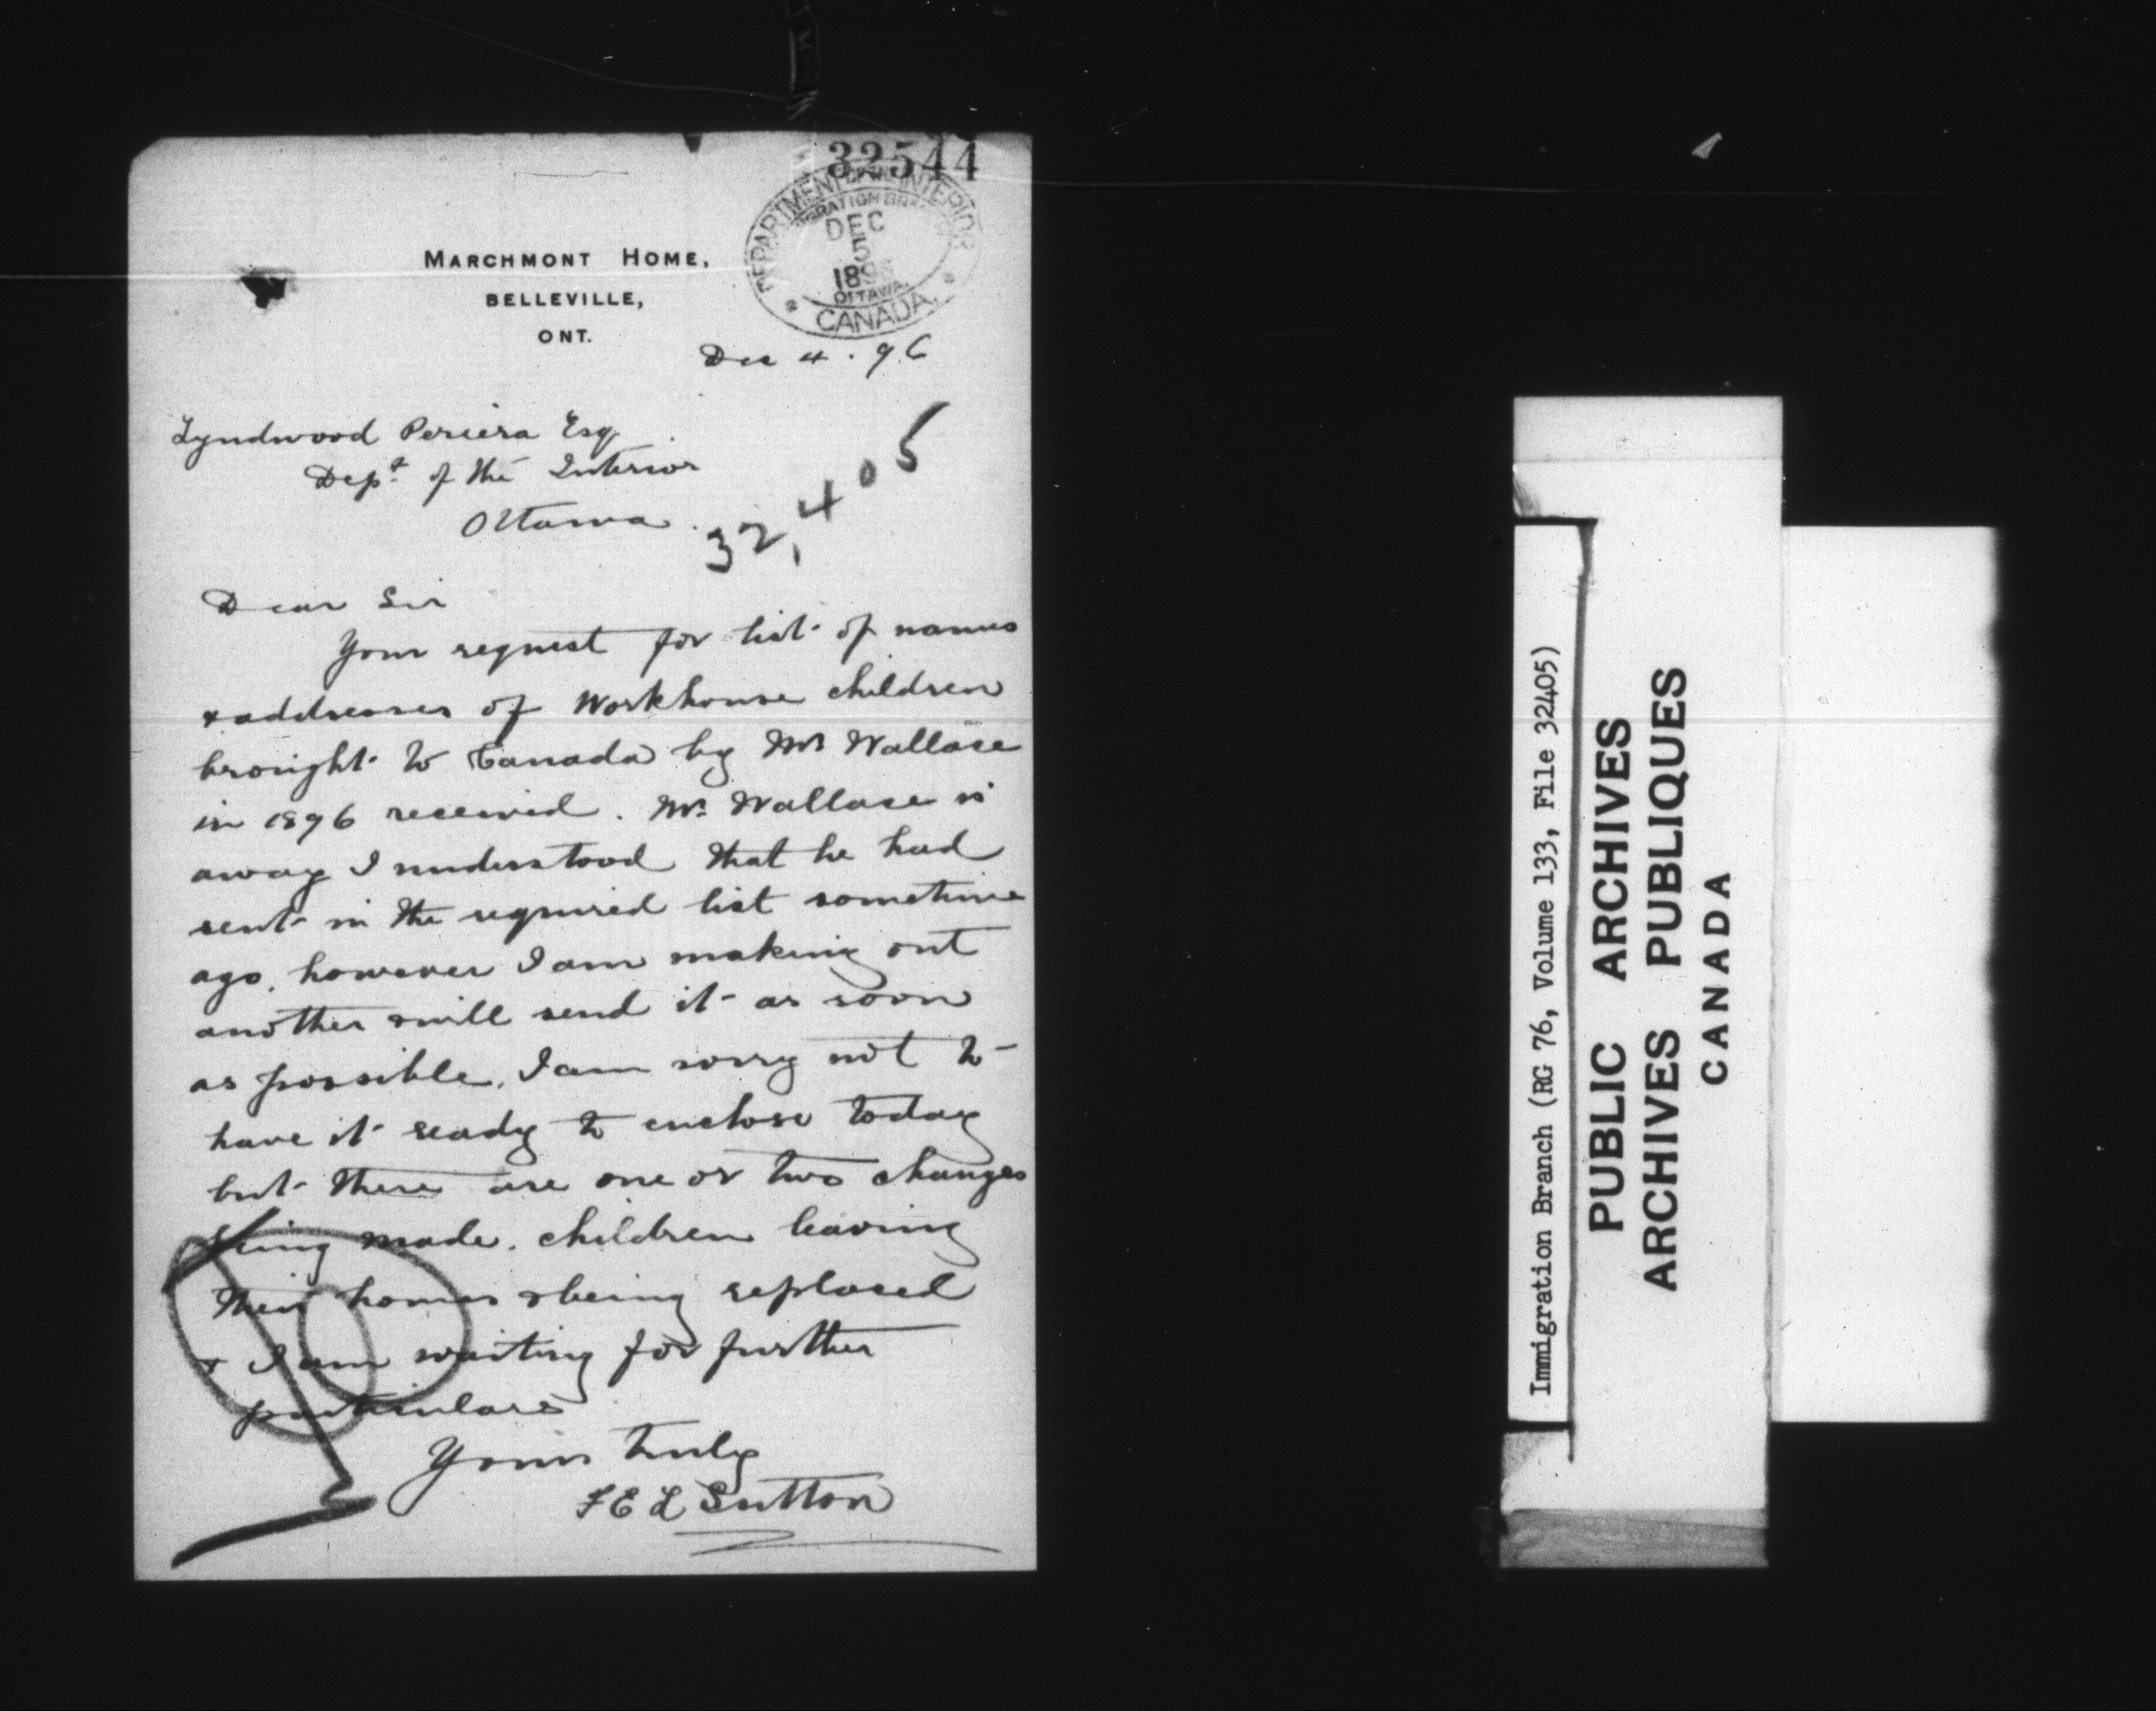 32544
DEPARTMENT OF THE INTERIOR
DEC
5
OTTAWA
CANADA.
MARCHMONT HOME,
BELLEVILLE,
ONT.
Dec 4. 96
Lyndwood Periera Esq
Dept. of the Interior
Ottawa.
32,405
Dear Sir
Your request for list of names
& addresses of Workhouse children
brought to Canada by Mr Wallace
in 1896 received. Mr. Wallace is
away I understood that he had
sent in the required list sometime
ago, however I am making out
another & will send it as soon
as possible, I am sorry not to
have it ready to enclose today
but there are one or two changes
being made, children leaving
their homes & being replaced
& I am waiting for further
particulars
Yours truly
F E L Sutton
Immigration Branch (RG 76, Volume 133, File 32405)
PUBLIC ARCHIVES
ARCHIVES PUBLIQUES
CANADA